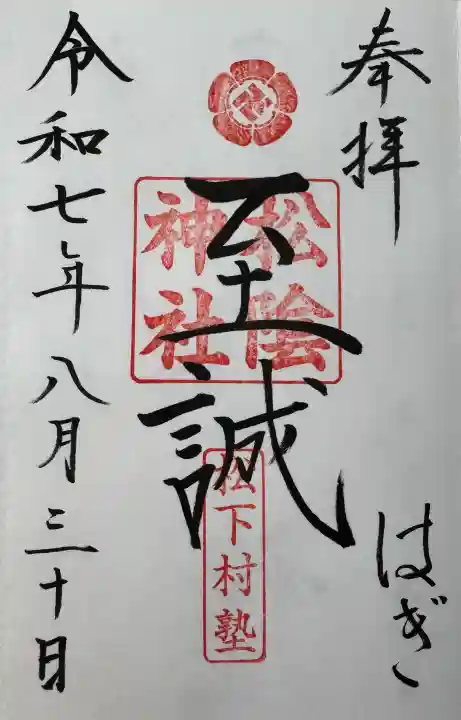 奉拝
はぎ
至誠
松陰
神社
松下村塾
令和七年八月三十日